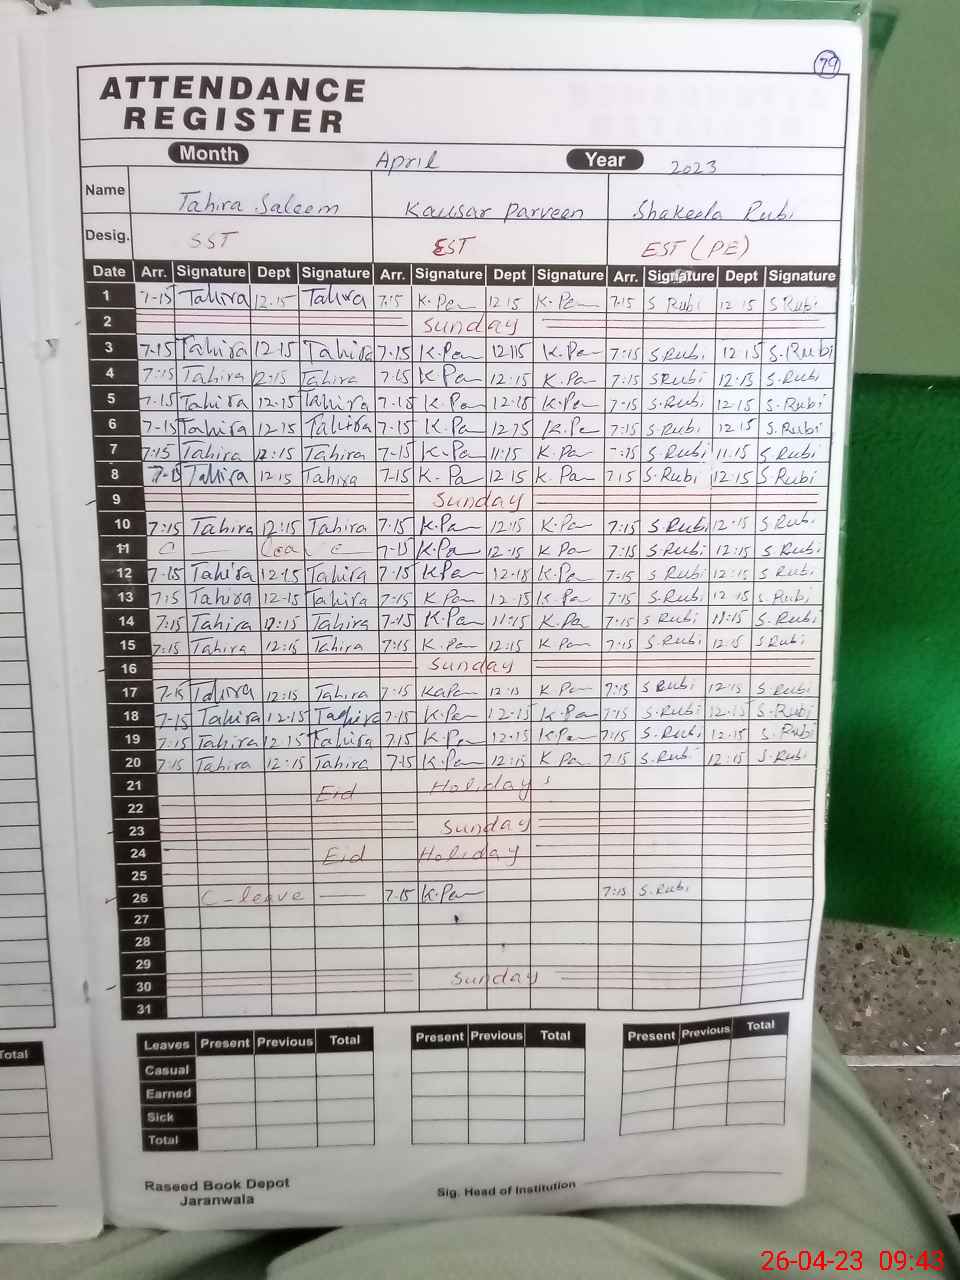 79
ATTENDANCE
REGISTER
Month April Year 2023
Name Tahira Saleem Kausar Parveen Shakeela Rubi
Desig. SST EST EST (PE)
Date Arr. Signature Dept Signature Arr. Signature Dept Signature Arr. Signature Dept Signature
1 7-15 Tahira 12.15 Tahira 7:15 K. Pan 12 15 K. Pan 7:15 S Rubi 12:15 S Rubi
2 Sunday
3 7-15 Tahira 12-15 Tahira 7-15 K.Pan 12:15 K.Pan 7:15 S.Rubi 12:15 S.Rubi
4 7:15 Tahira 12:15 Tahira 7-15 K Pan 12:15 K. Pan 7:15 SRubi 12:15 S.Rubi
5 7-15 Tahira 12-15 Tahira 7-15 K. Pan 12-15 K. Pan 7-15 S.Rubi 12:15 S. Rubi
6 7-15 Tahira 12:15 Tahira 7-15 K. Pan 12:15 K. Pan 7:15 S.Rubi 12.15 S.Rubi
7 7:15 Tahira 12:15 Tahira 7-15 K-Pan 11:15 K. Pan 7:15 S.Rubi 11:15 S Rubi
8 7-15 Tahira 12.15 Tahira 7-15 K. Pan 12 15 K. Pan 7:15 S.Rubi 12:15 S Rubi
9 Sunday
10 7:15 Tahira 12:15 Tahira 7-15 K.Pan 12:15 K. Pan 7:15 S Rubi 12:15 S.Rubi
11 C Leave 7-15 K.Pan 12:15 K Pan 7:15 S.Rubi 12:15 S Rubi
12 7-15 Tahira 12-15 Tahira 7-15 K Pan 12-15 K.Pan 7:15 S.Rubi 12:15 S Rubi
13 7:15 Tahira 12-15 Tahira 7-15 K Pan 12-15 K-Pan 7:15 S.Rubi 12:15 S Rubi
14 7:15 Tahira 11:15 Tahira 7-15 K.Pan 11:15 K.Pan 7:15 S Rubi 11:15 S.Rubi
15 7:15 Tahira 12:15 Tahira 7:15 K.Pan 12:15 K.Pan 7:15 S.Rubi 12:15 S Rubi
16 Sunday
17 7-15 Tahira 12:15 Tahira 7:15 KaPan 12:15 K Pan 7:15 S Rubi 12:15 S Rubi
18 7-15 Tahira 12-15 Tahira 7-15 K.Pan 12-15 K.Pan 7-15 S.Rubi 12:15 S.Rubi
19 7:15 Tahira 12:15 Tahira 7.15 K Pan 12:15 K.Pan 7:15 S.Rubi 12.15 S.Rubi
20 7:15 Tahira 12:15 Tahira 7:15 K.Pan 12:15 K Pan 7:15 S.Rubi 12:15 S.Rubi
21 Eid Holiday's
22
23 Sunday
24 Eid Holiday
25
26 C-leave 7-15 K.Pan 7:15 S.Rubi
27
28
29
30 Sunday
31
Leaves Present Previous Total Present Previous Total Present Previous Total
Casual
Earned
Sick
Total
Total
Raseed Book Depot
Jaranwala
Sig. Head of Institution
26-04-23 09:43